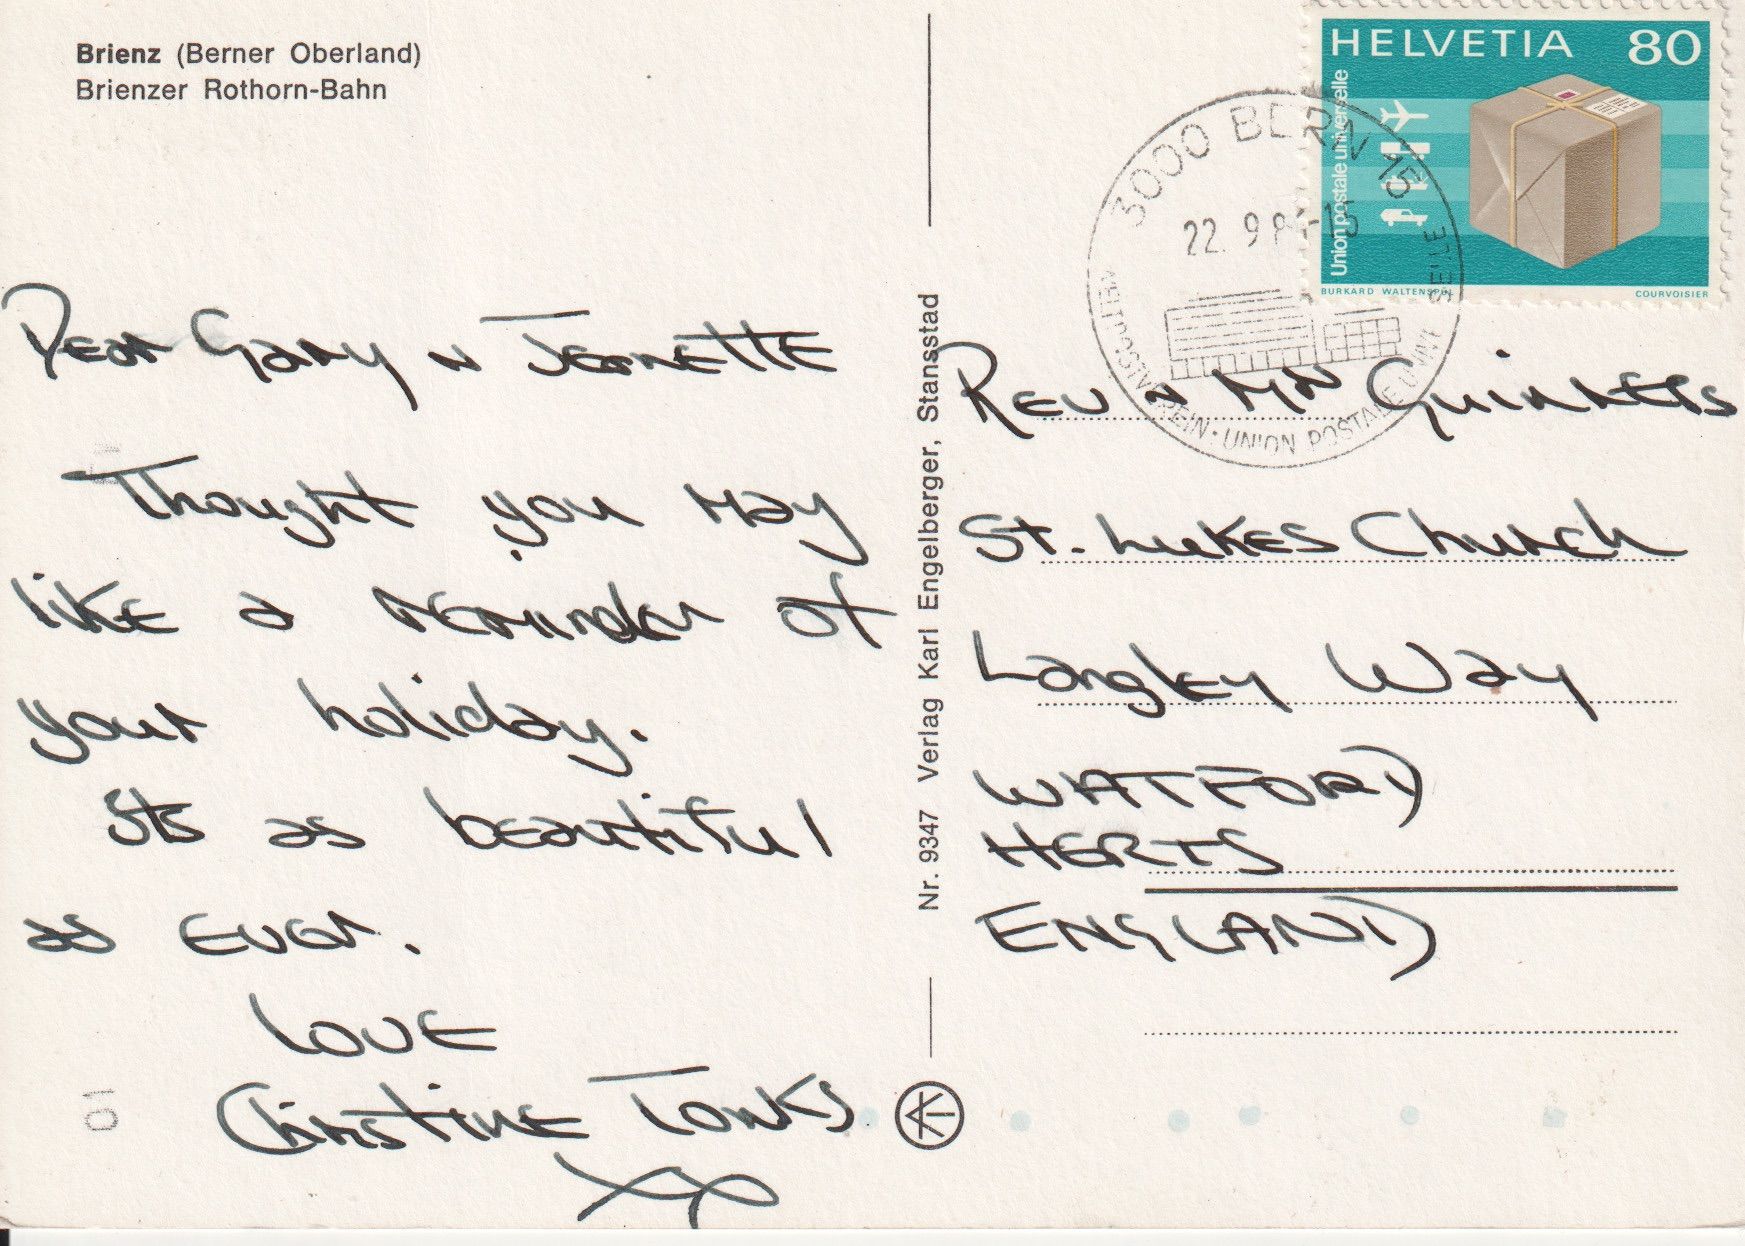 Brienz (Berner Oberland)
Brienzer Rothorn-Bahn
HELVETIA 80
Union postale universelle
BURKARD WALTENSPÜL
COURVOISIER
3000 BERN 15
22. 9 8
WELTPOSTVEREIN · UNION POSTALE UNIVERSELLE
Dear Gary n Jeanette
Thought you may
like a reminder of
your holiday.
Its as beautiful
as ever.
Love
Christine Tonks
Nr. 9347 Verlag Karl Engelberger, Stansstad
Rev n Mr
St. Lukes Church
Langley Way
WATFORD
HERTS
ENGLAND
10